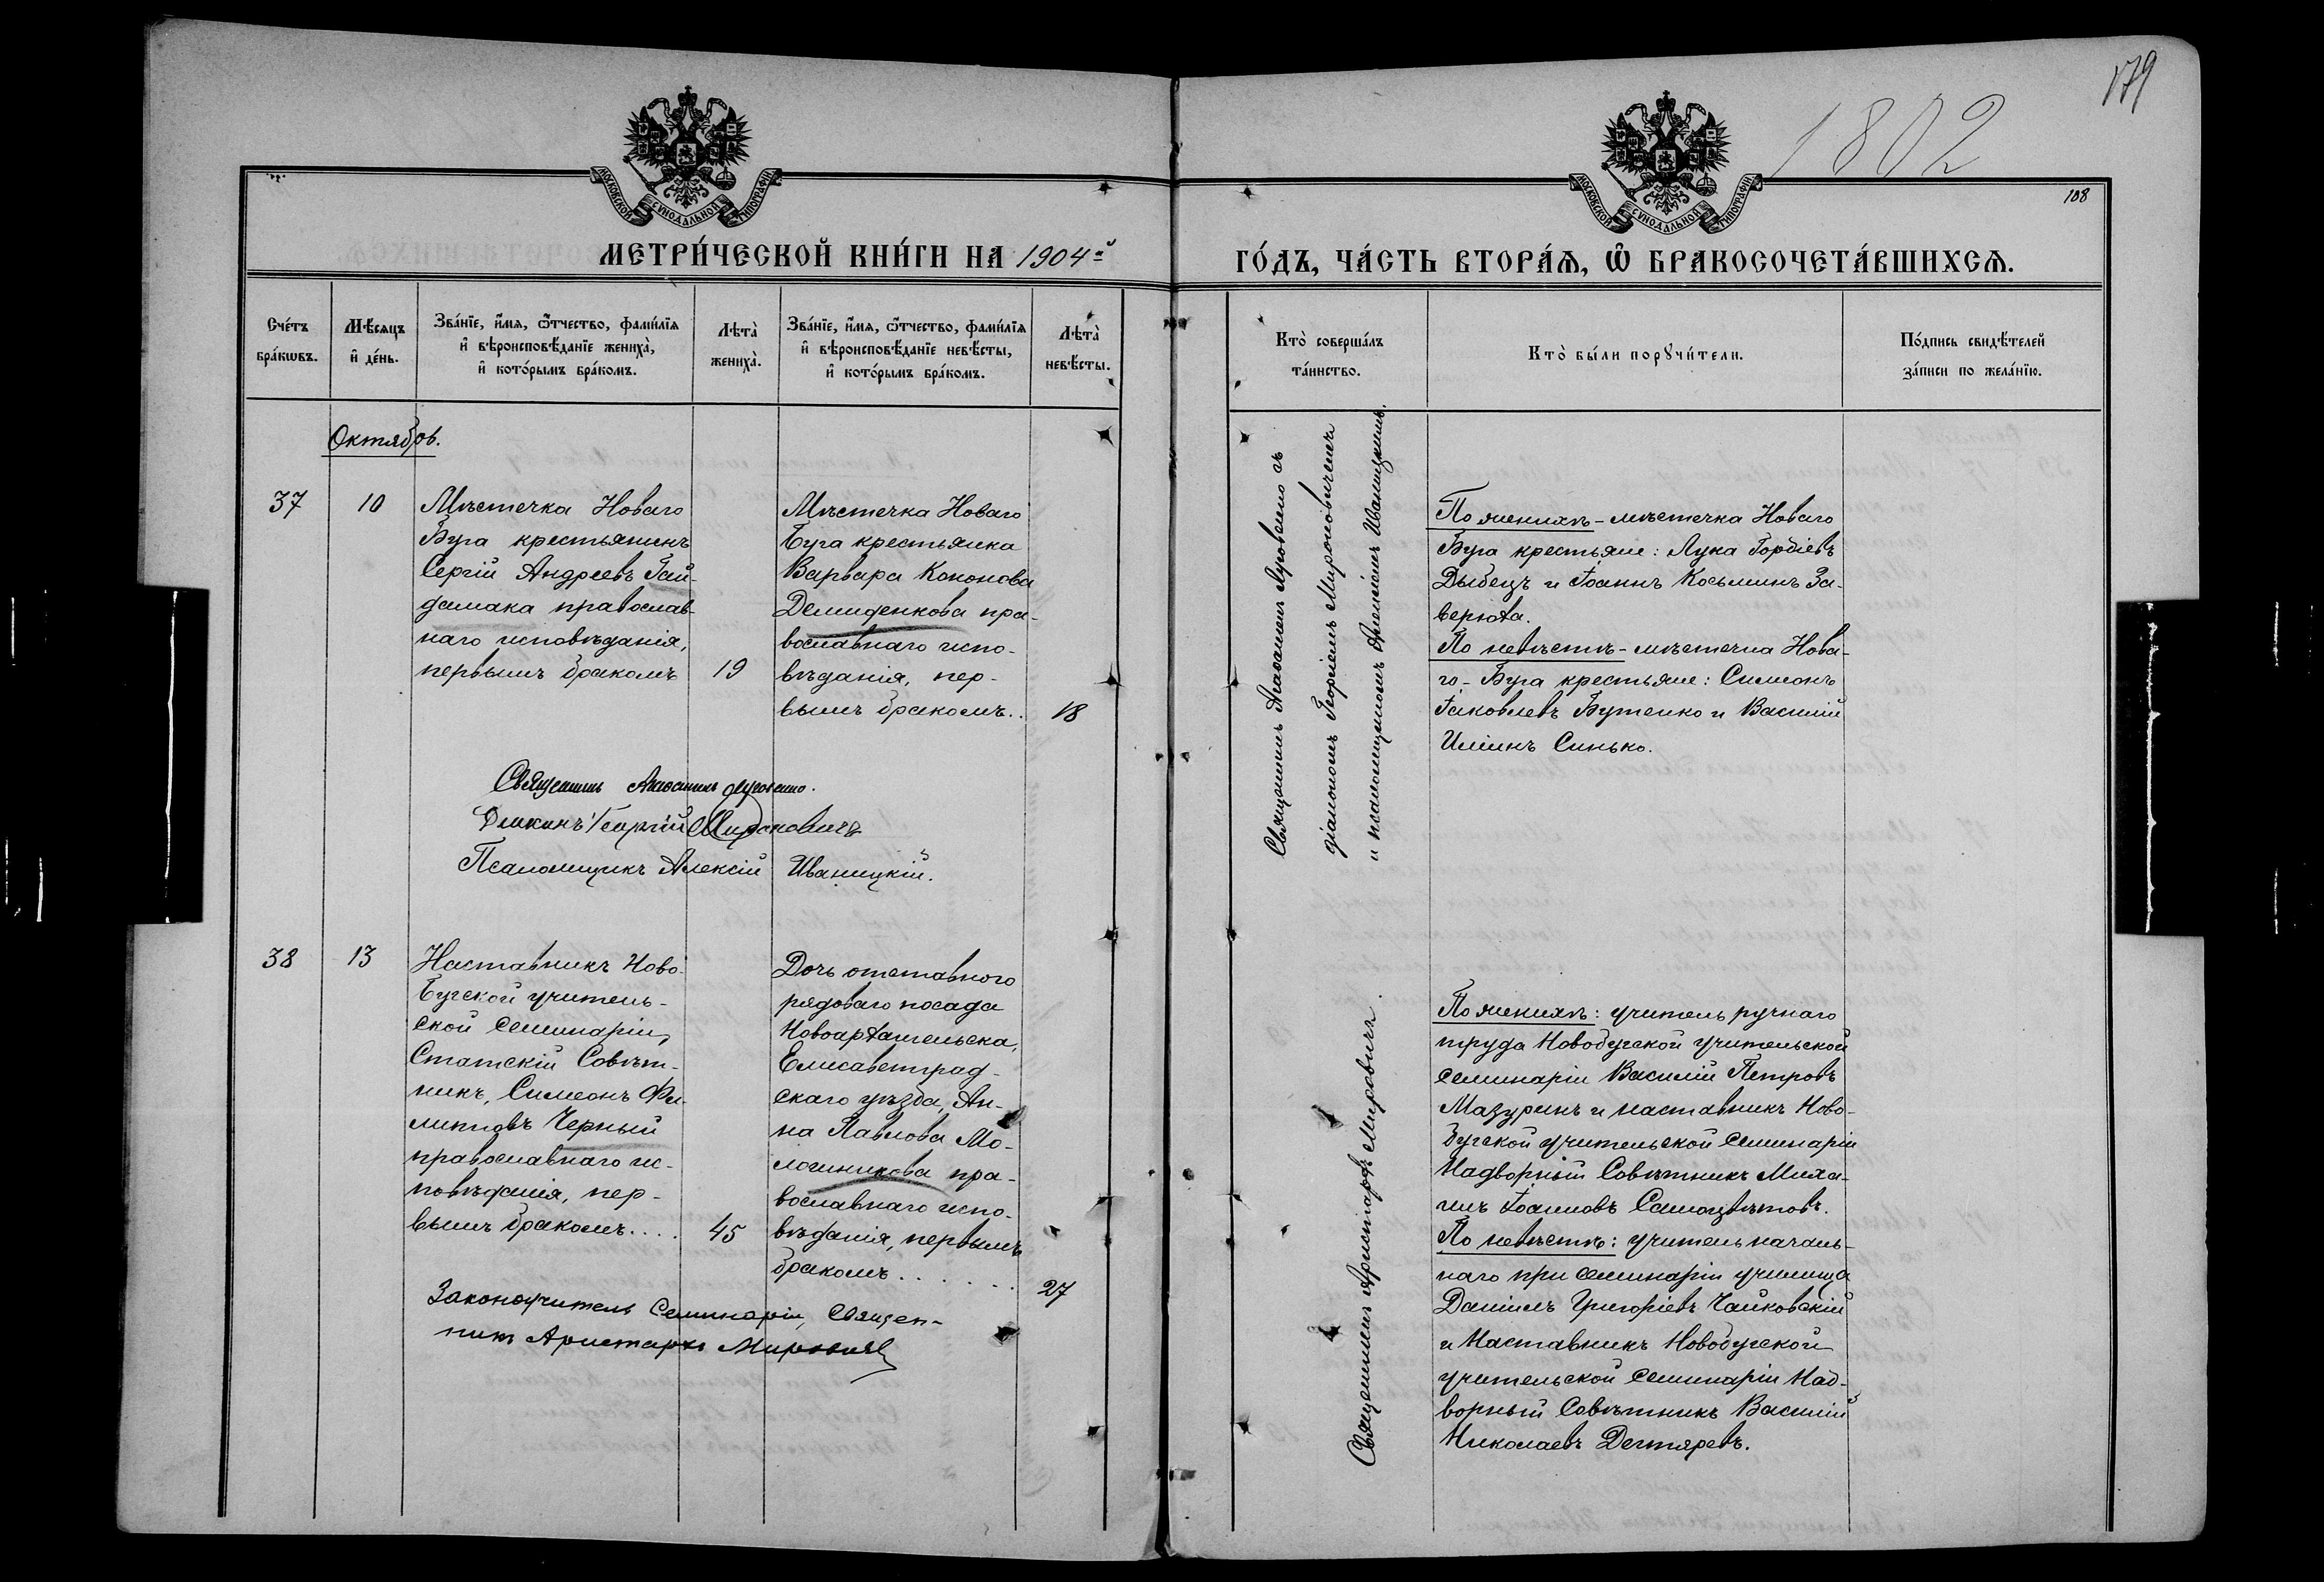 179
1802
108
МОСКОВСКОЙ СУНОДАЛЬНОЙ ТИПОГРАФІИ
МОСКОВСКОЙ СУНОДАЛЬНОЙ ТИПОГРАФІИ
МЕТРИ́ЧЕСКОЙ КНИ́ГИ НА 1904й
ГО́ДЪ, ЧА́СТЬ ВТОРА́Ѧ, Ѽ БРАКОСОЧЕТА́ВШИХСѦ.
Сче́тъ
бра́кѡвъ.
Мѣ́сѧцъ
и҆ де́нь.
Зва́нїе, и҆́мѧ, ѻ҆́тчество, фами́лїѧ
и҆ вѣроисповѣ́данїе жениха̀,
и҆ кото́рымъ бра́комъ.
Лѣта̀
жениха̀.
Зва́нїе, и҆́мѧ, ѻ҆́тчество, фами́лїѧ
и҆ вѣроисповѣ́данїе невѣ́сты,
и҆ кото́рымъ бра́комъ.
Лѣта̀
невѣ́сты.
Кто̀ соверша́лъ
та́инство.
Кто̀ бы́ли порꙋчи́тели.
По́дпись свидѣ́телей
за́писи по жела́нїю.
Октябрь.
37
10
Мѣстечка Новаго
Буга крестьянинъ
Сергій Андреевъ Гай-
дамака православ-
наго исповѣданія,
первымъ бракомъ
19
Мѣстечка Новаго
Буга крестьянка
Варвара Кононова
Демиденкова пра-
вославнаго испо-
вѣданія, пер-
вымъ бракомъ..
18
Священникъ Агаѳоникъ Луговенко съ
діакономъ Георгіемъ Мироновичемъ
и псаломщикомъ Алексіемъ Иваницкимъ.
По женихѣ - мѣстечка Новаго
Буга крестьяне: Лука Гордіевъ
Дыбецъ и Іоаннъ Косьминъ За-
верюха.
По невѣстѣ - мѣстечка Нова-
го-Буга крестьяне: Симеонъ
Іаковлевъ Бутенко и Василій
Иліинъ Синько.
Священникъ Агаѳоникъ Луговенко.
Діаконъ Георгій Мироновичъ
Псаломщикъ Алексій Иваницкій.
38
13
Наставникъ Ново-
бугской учитель-
ской семинаріи,
Статскій Совѣт-
никъ, Симеонъ Фи-
липповъ Черный
православнаго ис-
повѣданія, пер-
вымъ бракомъ....
45
Дочь отставного
рядоваго посада
Новоархангельска,
Елисаветград-
скаго уѣзда, Ан-
на Павлова Мо-
лошникова пра-
вославнаго испо-
вѣданія, первымъ
бракомъ......
27
Священникъ Аристархъ Мировичъ.
По женихѣ: учитель ручнаго
труда Новобугской учительской
семинаріи Василій Петровъ
Мазуринъ и наставникъ Ново-
бугской учительской семинаріи
Надворный Совѣтникъ Миха-
илъ Іоанновъ Самоцвѣтовъ.
По невѣстѣ: учитель началь-
наго при семинаріи училища
Даніилъ Григоріевъ Чайковскій
и Наставникъ Новобугской
учительской семинаріи Над-
ворный Совѣтникъ Василій
Николаевъ Дегтяревъ.
Законоучитель Семинаріи, Священ-
никъ Аристархъ Мировичъ